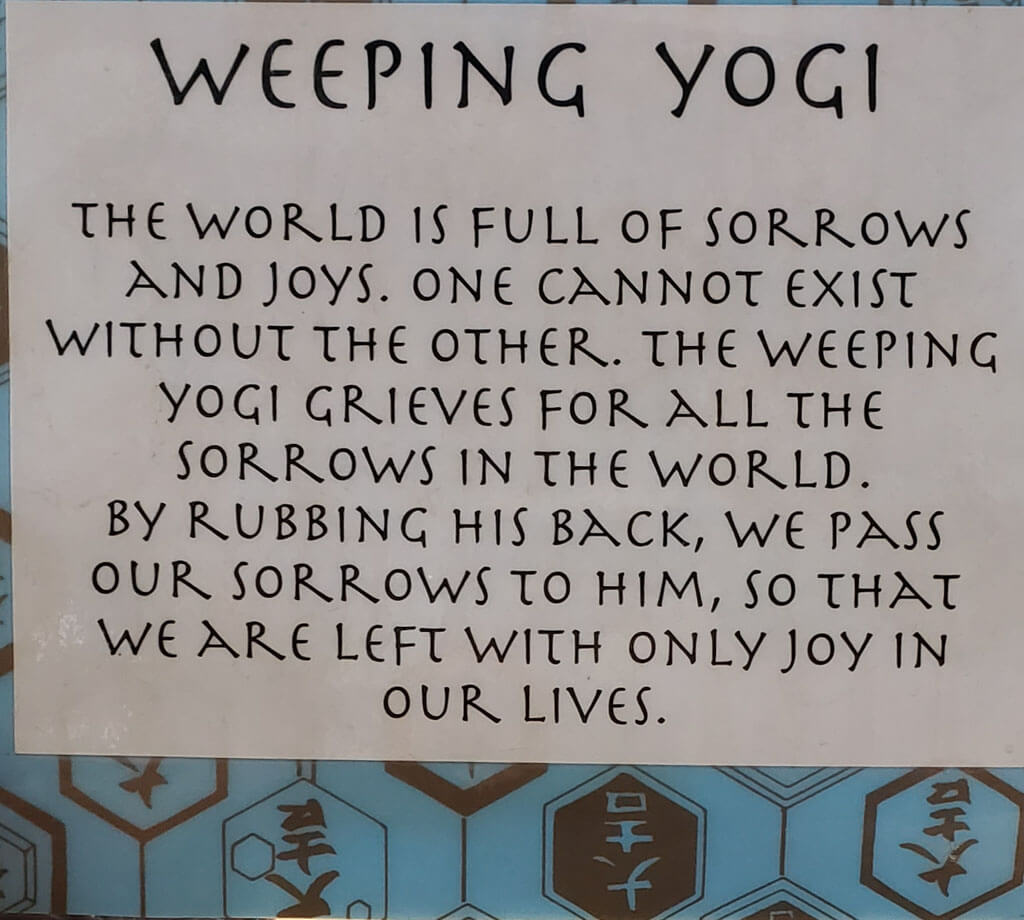 WEEPING YOGI
THE WORLD IS FULL OF SORROWS
AND JOYS. ONE CANNOT EXIST
WITHOUT THE OTHER. THE WEEPING
YOGI GRIEVES FOR ALL THE
SORROWS IN THE WORLD.
BY RUBBING HIS BACK, WE PASS
OUR SORROWS TO HIM, SO THAT
WE ARE LEFT WITH ONLY JOY IN
OUR LIVES.
大吉
大吉
大吉